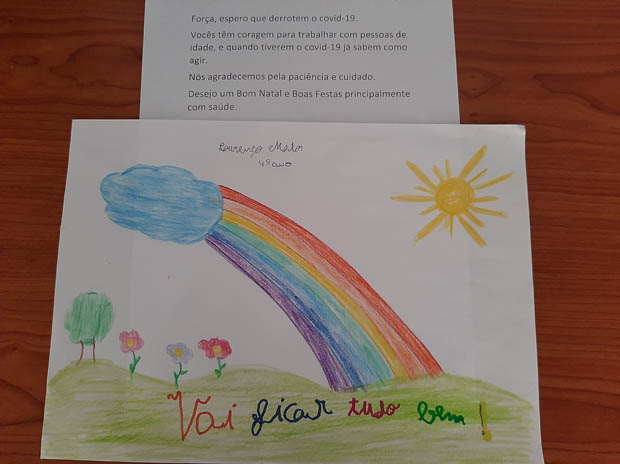 Força, espero que derrotem o covid-19.
Vocês têm coragem para trabalhar com pessoas de
idade, e quando tiverem o covid-19 já sabem como
agir.
Nós agradecemos pela paciência e cuidado.
Desejo um Bom Natal e Boas Festas principalmente
com saúde.
Lourenço Mator
4º ano
Vai ficar tudo bem!